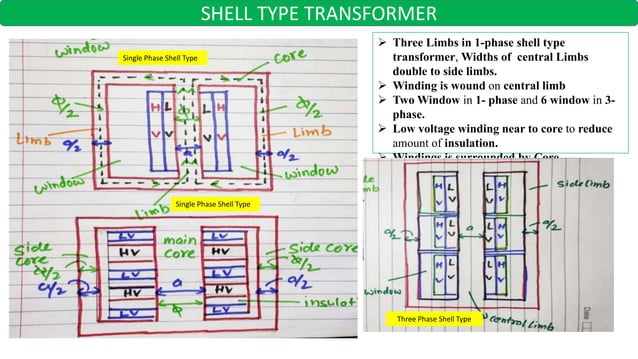 SHELL TYPE TRANSFORMER
window
Single Phase Shell Type
core
ϕ/2
H L
V V
ϕ
L H
V V
ϕ/2
Limb
a/2
a
Limb
a/2
window
window
Limb
Single Phase Shell Type
Side core
ϕ/2
a/2
LV
HV
LV
HV
LV
main core
a
ϕ
LV
HV
LV
HV
LV
Side core
ϕ/2
a/2
insulati
➢ Three Limbs in 1-phase shell type
transformer, Widths of central Limbs
double to side limbs.
➢ Winding is wound on central limb
➢ Two Window in 1- phase and 6 window in 3-
phase.
➢ Low voltage winding near to core to reduce
amount of insulation.
➢ Windings is surrounded by Core
de
mb
H L
V V
L H
V V
Side limb
a/2
H L
V V
a
L H
V V
a/2
window
H L
V V
L H
V V
Three Phase Shell Type
central limb
Date